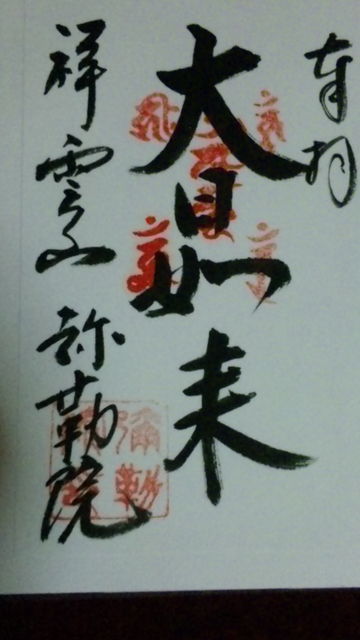 奉拝
大日如来
祥雲山 弥勒院
彌勒